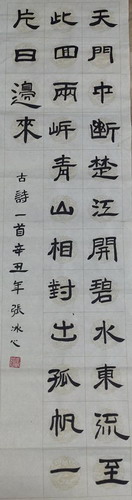 天門中斷楚江開碧水東流至
此回兩岍青山相對出孤帆一
片日邊來
古詩一首辛丑年張冰心